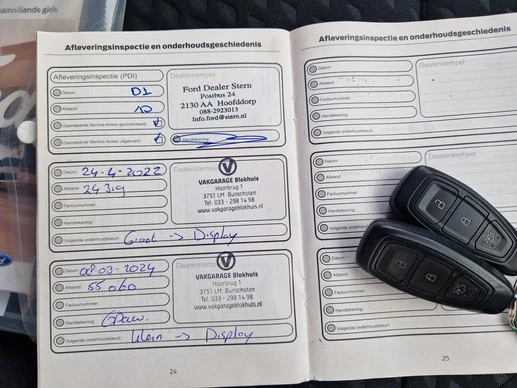 aanvullende gids
Afleveringsinspectie en onderhoudsgeschiedenis
Afleveringsinspectie (PDI)
Datum D1
Afstand 10
Openstaande Service-Acties gecontroleerd
Openstaande Service-Acties uitgevoerd
Dealerstempel
Ford Dealer Stern
Postbus 24
2130 AA Hoofddorp
088-2923013
Info.ford@stern.nl
Handtekening
Datum 24-4-2022
Afstand
Factuurnummer
Handtekening
Volgende onderhoudsbeurt Groot -> Display
Dealerstempel
VAKGARAGE Blokhuis
Haarbrug 1
3751 LM Bunschoten
Tel. 033 - 298 14 98
www.vakgarageblokhuis.nl
Datum 08-03-2024
Afstand 55060
Factuurnummer
Handtekening
Volgende onderhoudsbeurt Klein -> Display
Dealerstempel
VAKGARAGE Blokhuis
Haarbrug 1
3751 LM Bunschoten
Tel. 033 - 298 14 98
www.vakgarageblokhuis.nl
24
Afleveringsinspectie en onderhoudsgeschiedenis
Datum
Afstand
Factuurnummer
Handtekening
Volgende onderhoudsbeurt
Dealerstempel
Datum
Afstand
Factuurnummer
Handtekening
Volgende onderhoudsbeurt
Dealerstempel
Datum
Afstand
Factuurnummer
Handtekening
Volgende onderhoudsbeurt
25